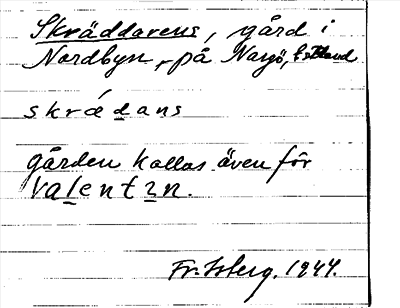 Skräddarens, gård i
Nordbyn, på Nargö, Estland
skrædans
gården kallas även för
valentin.
Fr. Isberg. 1944.